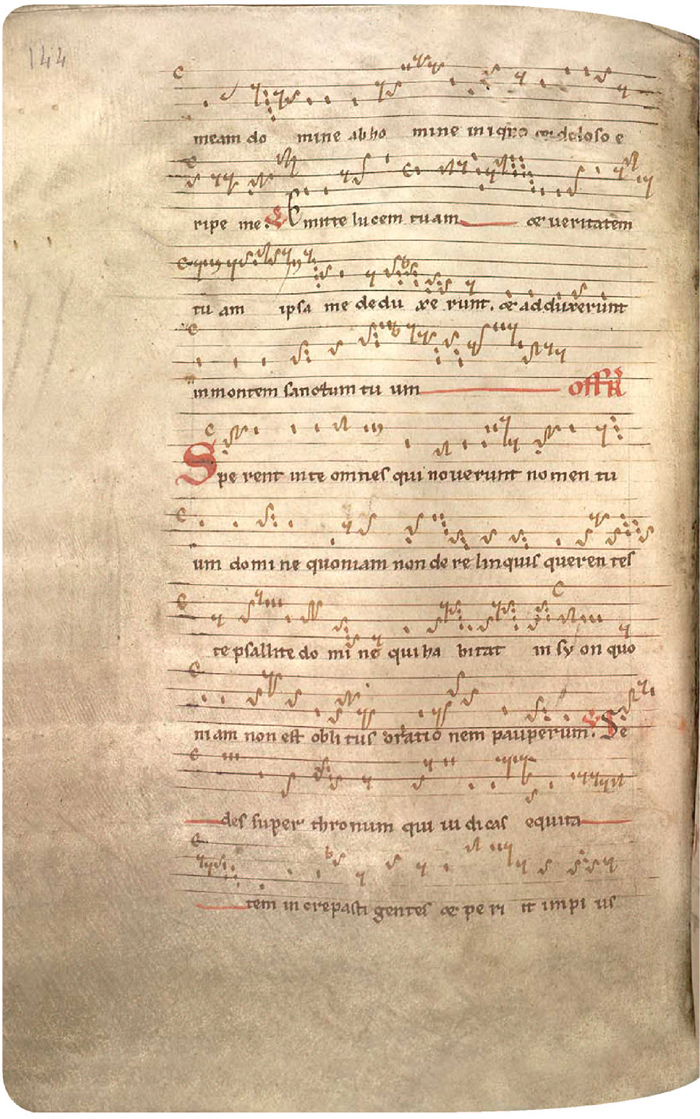 144
meam do mine ab ho mine iniquo & doloso e
ripe me. Emitte lucem tuam & veritatem
tu am ipsa me dedu xe runt. & adduxerunt
in montem sanctum tu um offr
Spe rent in te omnes qui noverunt nomen tu
um domi ne quoniam non de re linquis queren tes
te psallite do mi no qui ha bitat in sy on quo
niam non est obli tus oratio nem pauperum. Se
des super thronum qui iu dicas equita
tem increpasti gentes & pe ri it impi us